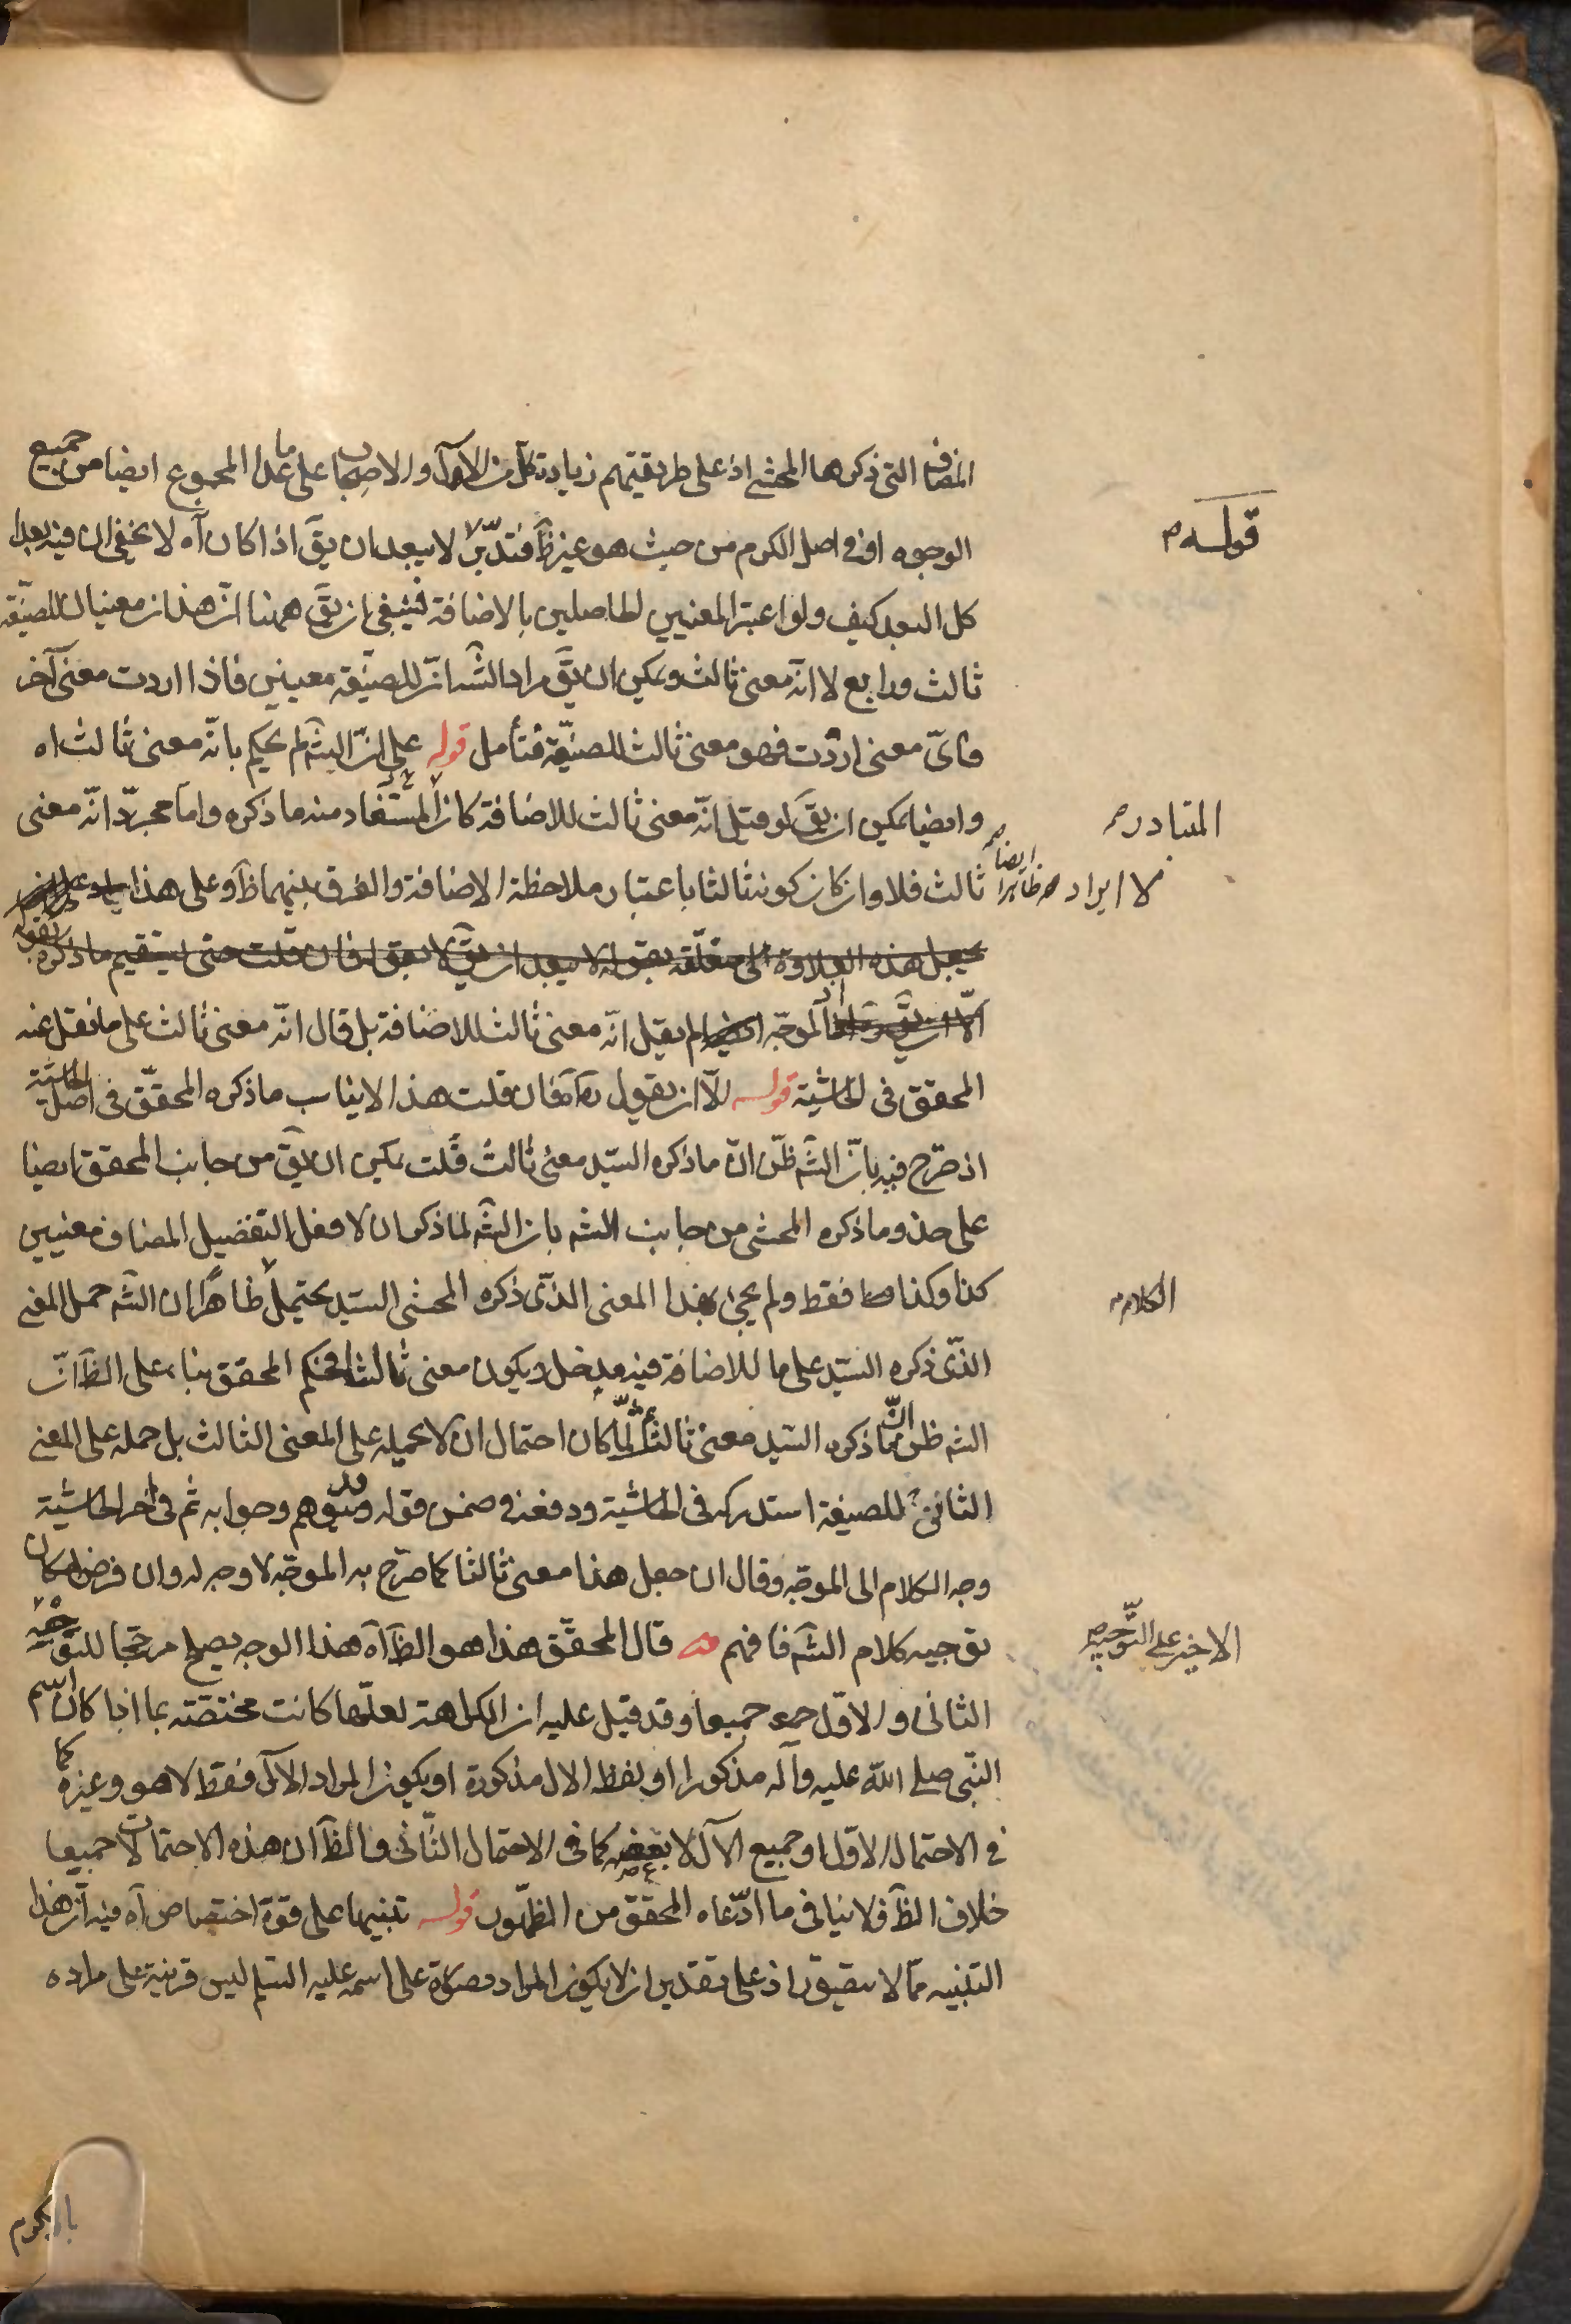 المضاف التى ذكرها المحشى اذ على طريقتهم زيادة كل من الال والاصحاب على ما عدا المجموع ايضا من جميع
الوجوه او فى اصل الكرم من حيث هو غير ظَ فتدبّر لا يبعد ان يقَ اذا كان آه لا يخفى ان فيه بعدا
كل البعد كيف ولو اعتبر المعنيين الحاصلين بالاضافة فينبغى ان يقَ ههنا انّ هذان معنيان للصيّغة
ثالث ورابع لا انّه معنى ثالث ويمكن ان يقَ مراد الشَ انّ للصيّغة معنيين فاذا اردت معنى آخر
فاىّ معنى اردت فهو معنى ثالث للصيّغة فتأمل قوله على انّ الشَ لم يحكم بانّه معنى ثالث اه
وايضا يمكن ان يقَ لو قيل انّه معنى ثالث للاضافة كان المستفاد منه ما ذكره واما مجرّد انّه معنى
ثالث فلا وان كان كونه ثالثا باعتبار ملاحظة الاضافة والفرق بينهما ظَ وعلى هذا
يجعل هذه العلاوة متعلّقة بقوله لا يبعد ان يقَ لا بقوله فان قلت حتى يستقيم ما ذكره بقوله
الّا ان يقَ الموجّه ايضا لم يقل انّه معنى ثالث للاضافة بل قال انّه معنى ثالث على ما نقل عنه
المحقق فى الحاشّية قوله الّا ان يقول آه فان قلت هذا لا يناسب ما ذكره المحقّق فى اصل الحاشية
اذ صّرح فيه بانّ الشَ ظنّ انّ ما ذكره السيّد معنى ثالث قلت يمكن ان يقَ من جانب المحقق ايضا
على حذو ما ذكره المحشى من جانب الشَ بان الشَ لما ذكر ان لافعل التفضيل المضاف معنيين
كذا وكذا فقط ولم يجئ بهذا المعنى الذّى ذكره المحشى السيّد يحتمل ظاهرا ان الشَ حمل المعنى
الذّى ذكره السيّد على ما للاضافة فيه مدخل ويكون معنى ثالثا فحكم المحقق بناء على الظَ انّ
الشَ ظن انّ ما ذكره السيّد معنى ثالث ثم لمّا كان احتمال ان لا يحمله على المعنى الثالث بل حمله على المعنى
الثانى للصيغة استدركه فى الحاشّية ودفعه فى ضمن قوله وقد يتوهم وجوابه ثم فى آخر الحاشّية
وجه الكلام الى الموجّه وقال ان جعل هذا معنى ثالثا كما صّرح به الموجّه لا وجه له وان فرض امكان
توجيه كلام الشَ فافهم قال المحقّق هذا هو الظَ آه هذا الوجه يصلح مرجّحا للتوجيه
الثانى والاوّل جميعا وقد قيل عليه ان الكراهة لعلّها كانت مختصّة بما اذا كان اسم
النّبى صلى اللّه عليه وآله مذكورا او لفظ الال مذكورة او يكون المراد الآل فقط لا هو وغيره كما
فى الاحتمال الاوّل او جميع الآل لا بعضه كما فى الاحتمال الثّانى والظَ ان هذه الاحتمالات جميعا
خلاف الظَ فلا ينافى ما ادّعاه المحقق من الظّهور قوله تنبيها على قوّة اختصاص آه فيه انّ هذا
التنبيه ممّا لا يتحقق اذ على تقدير ان لا يكون المراد صلاة على اسمه عليه السّلم ليس قرينة على مراده
قوله
المتبادر
لا ايراد ظاهرا ايضا
الكلام
الاخير على التّوجيه